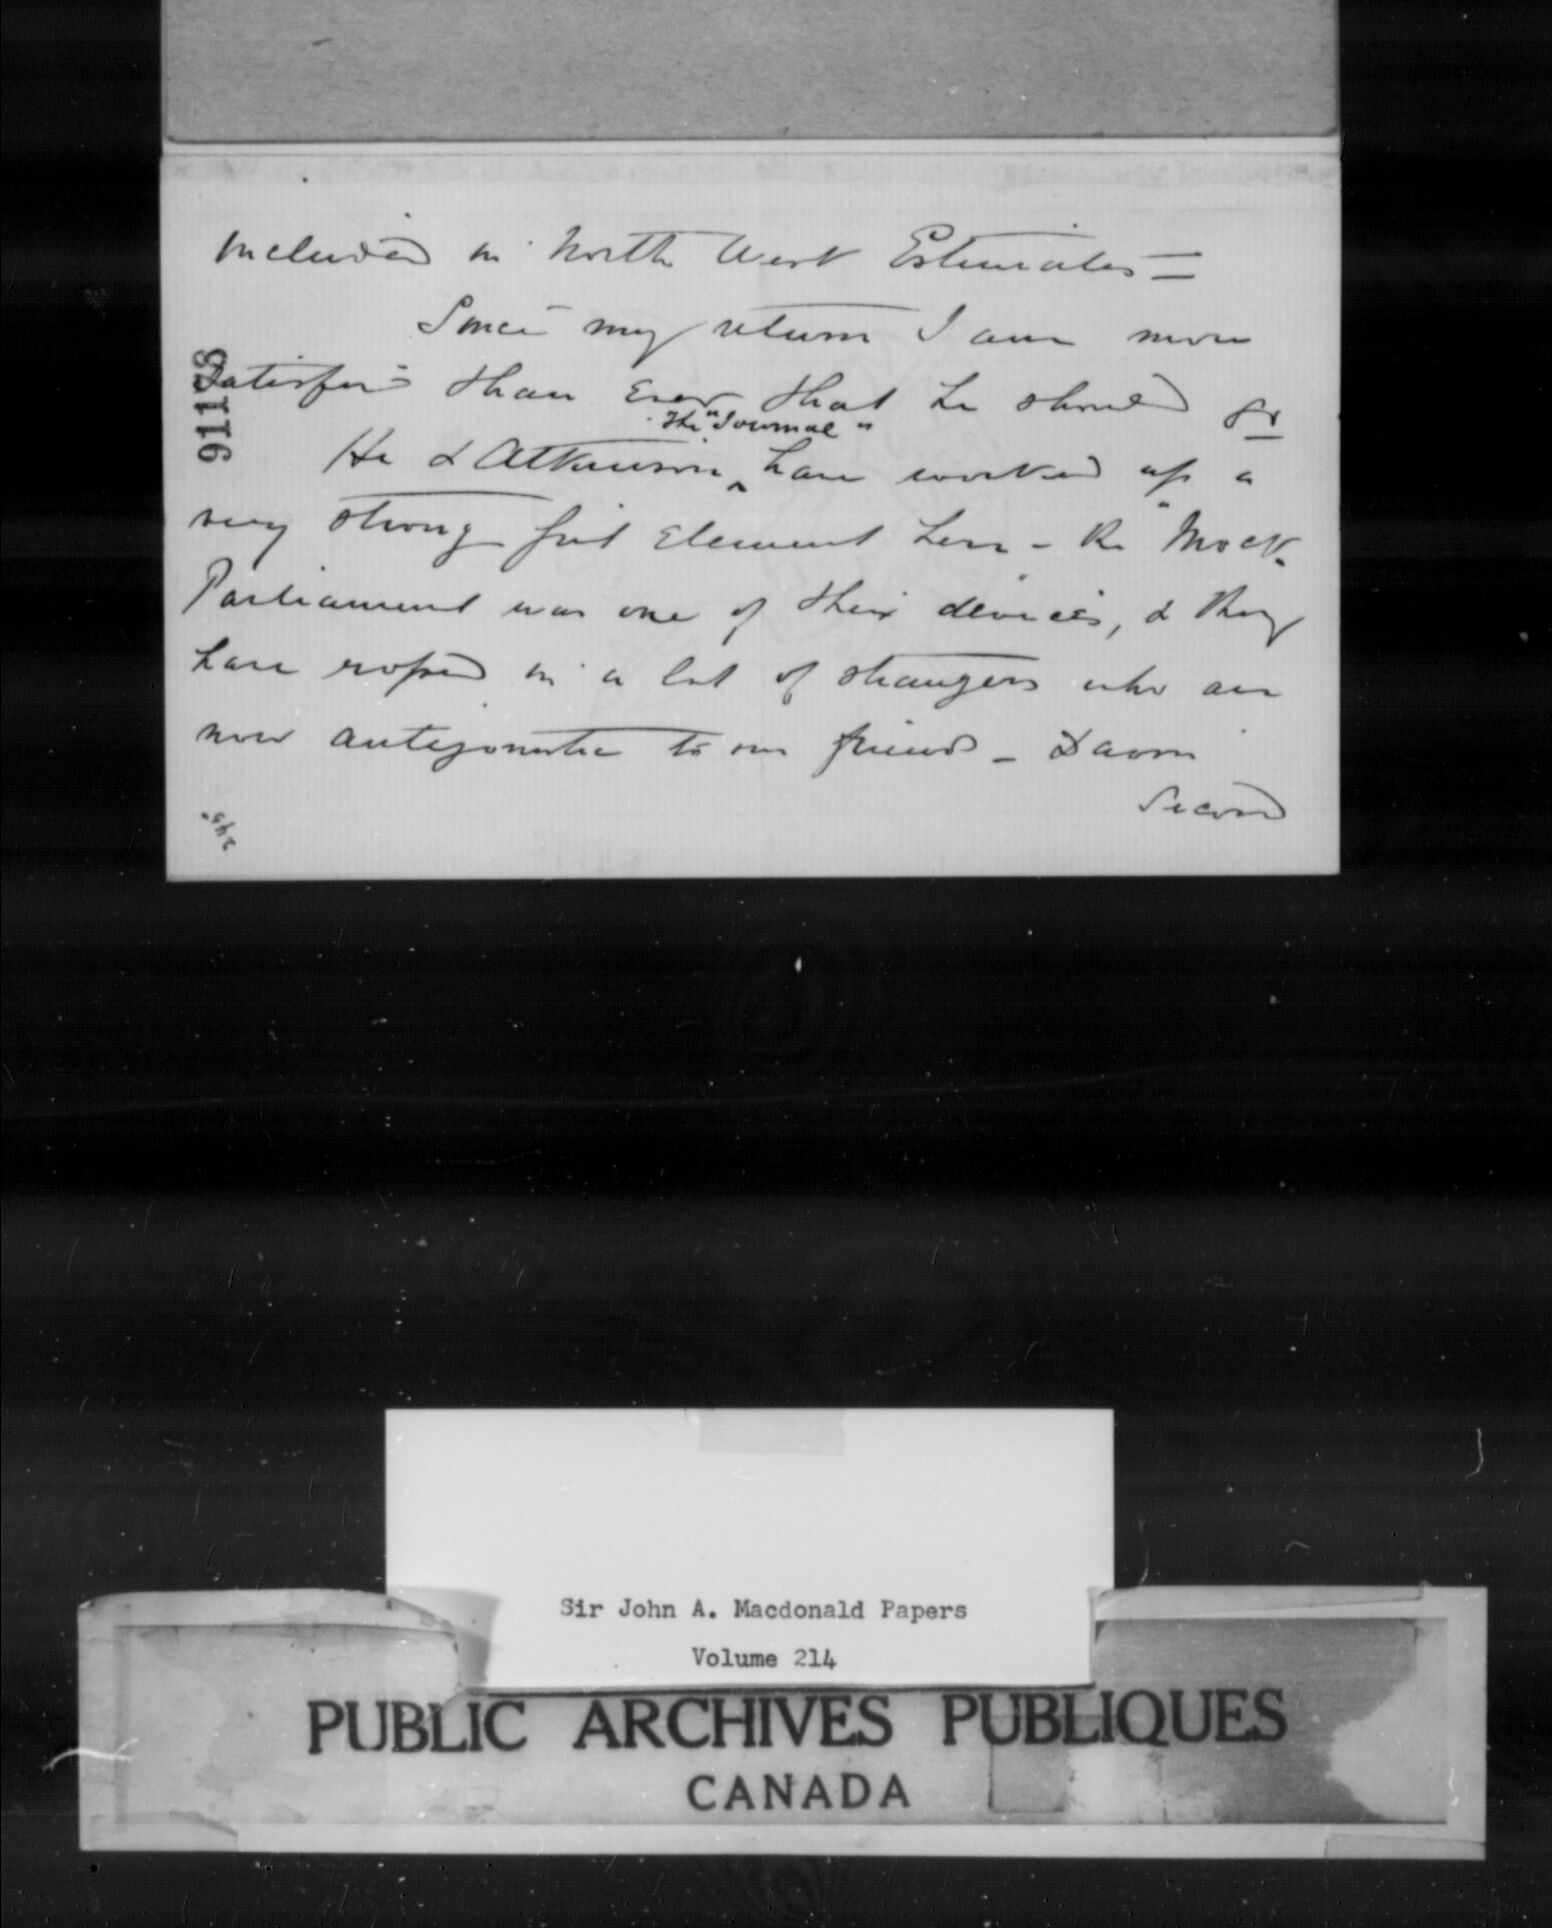 included in North West Estimates =
Since my return I am more
satisfied than Ever that he should go
The "Journal"
He & Atkinson have worked up a
very strong Element here - the "Mock
Parliament was one of their devices, & they
have roped in a lot of strangers who are
now antagonistic to our friends - Davin
Second
91118
245
Sir John A. Macdonald Papers
Volume 214
PUBLIC ARCHIVES PUBLIQUES
CANADA